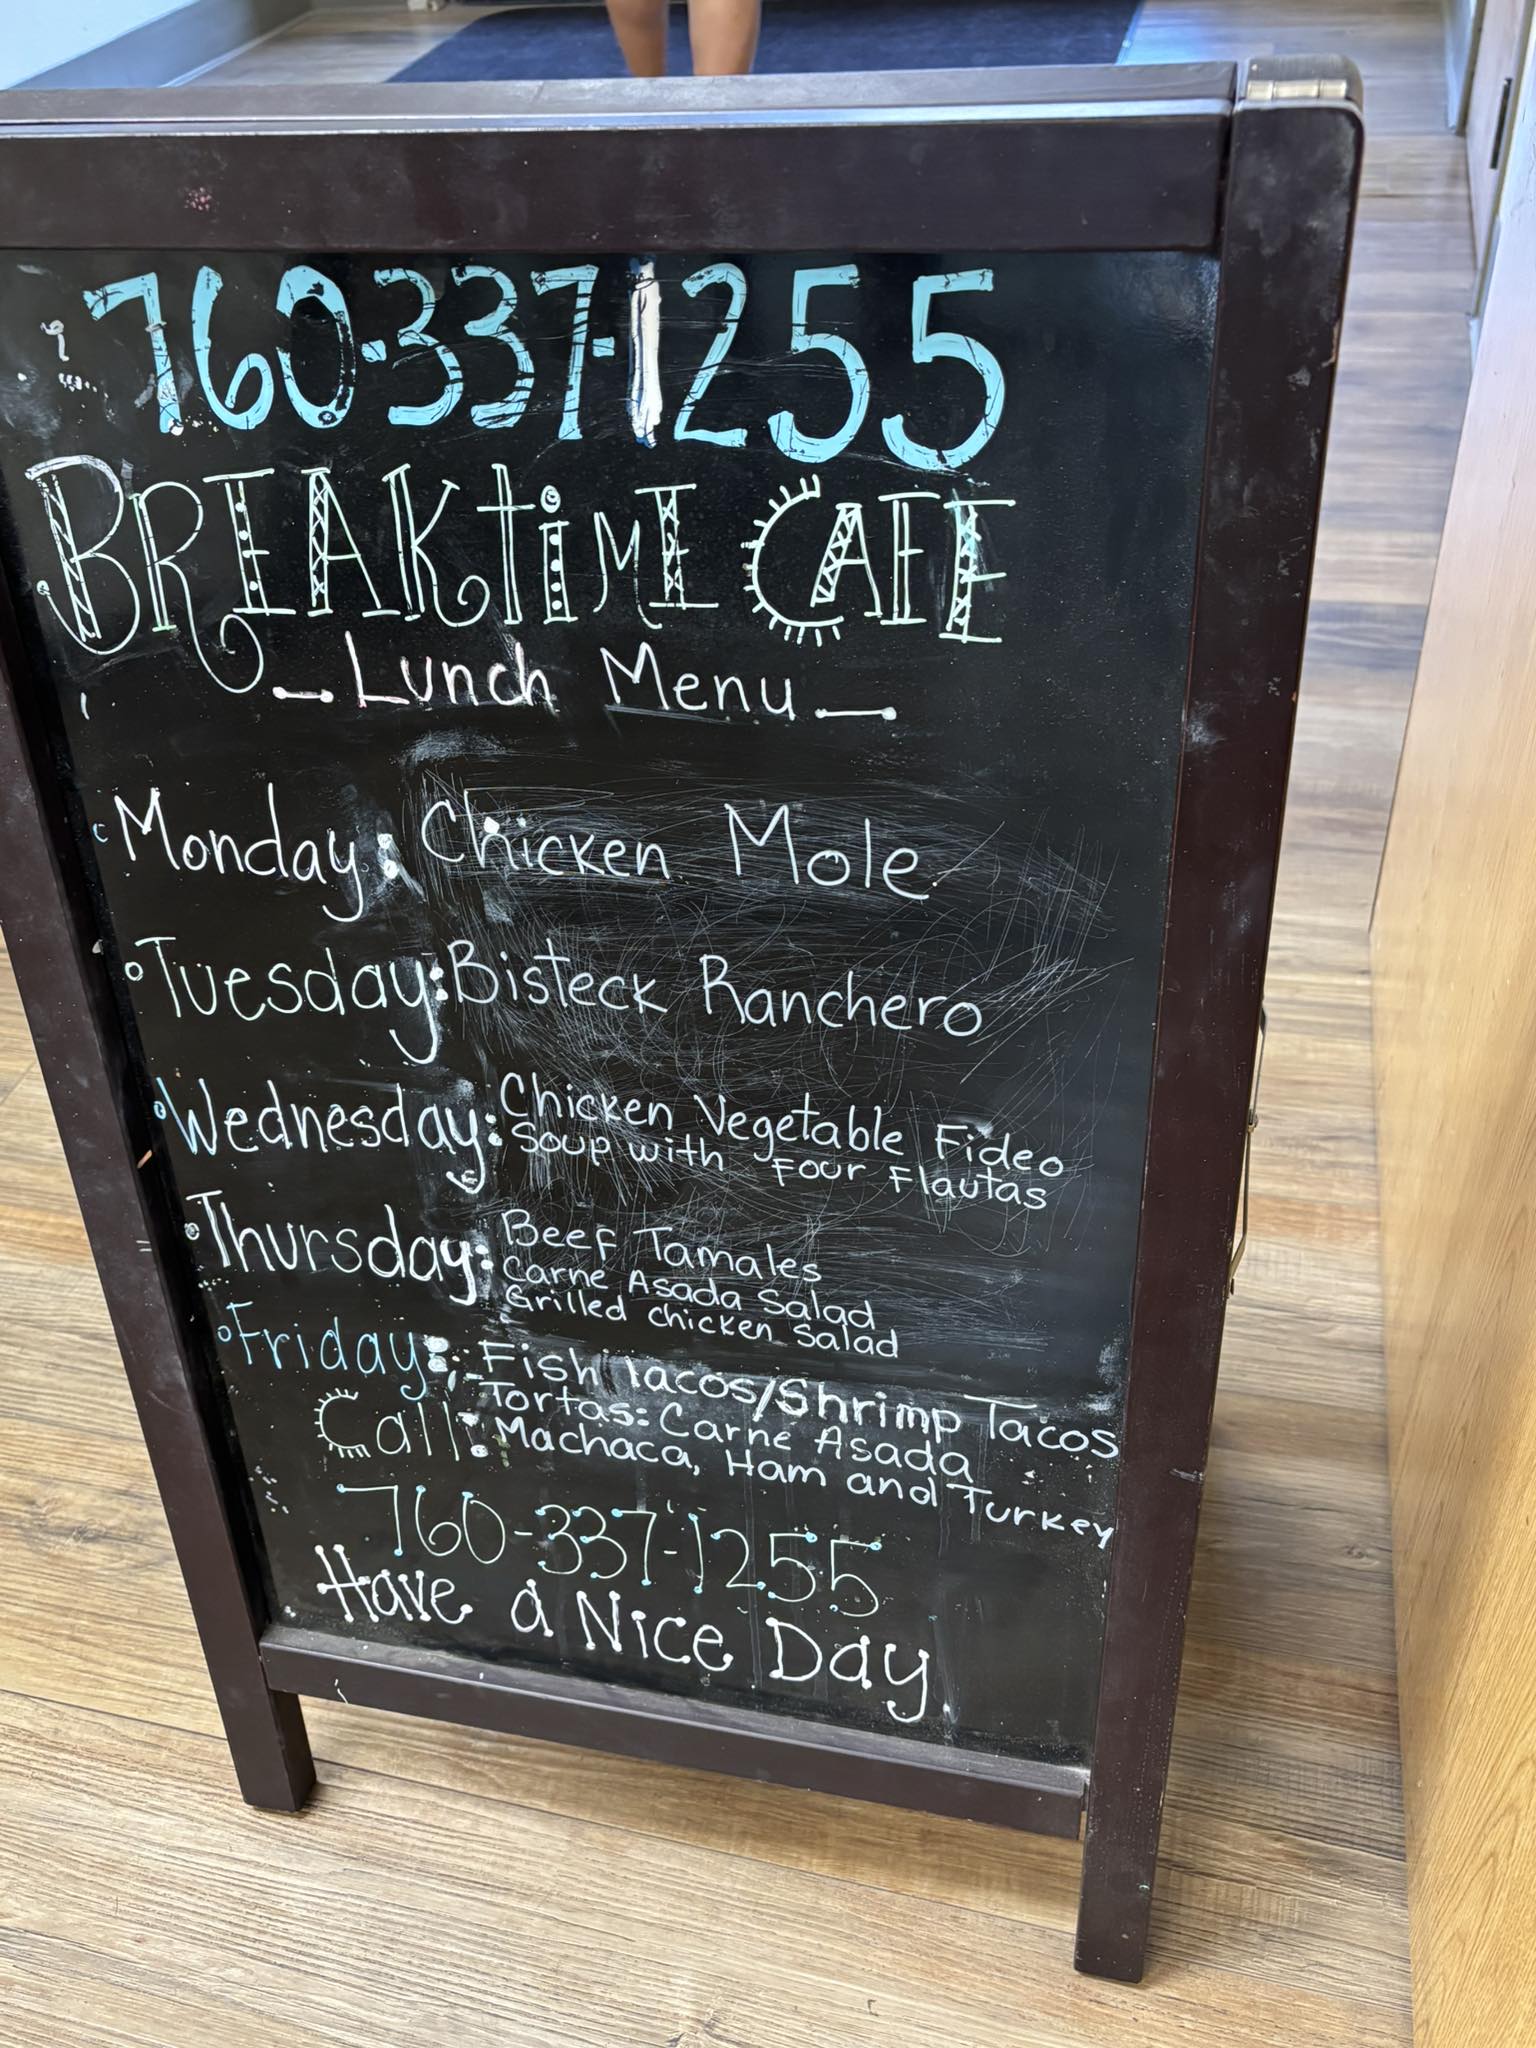 760-337-1255
BREAKtiME CAFE
Lunch Menu
Monday: Chicken Mole
Tuesday: Bisteck Ranchero
Wednesday: Chicken Vegetable Fideo
Soup with Four Flautas
Thursday: Beef Tamales
Carne Asada Salad
Grilled chicken salad
Friday: Fish Tacos/Shrimp Tacos
Tortas: Carne Asada
Machaca, Ham and Turkey
Call:
760-337-1255
Have a Nice Day.